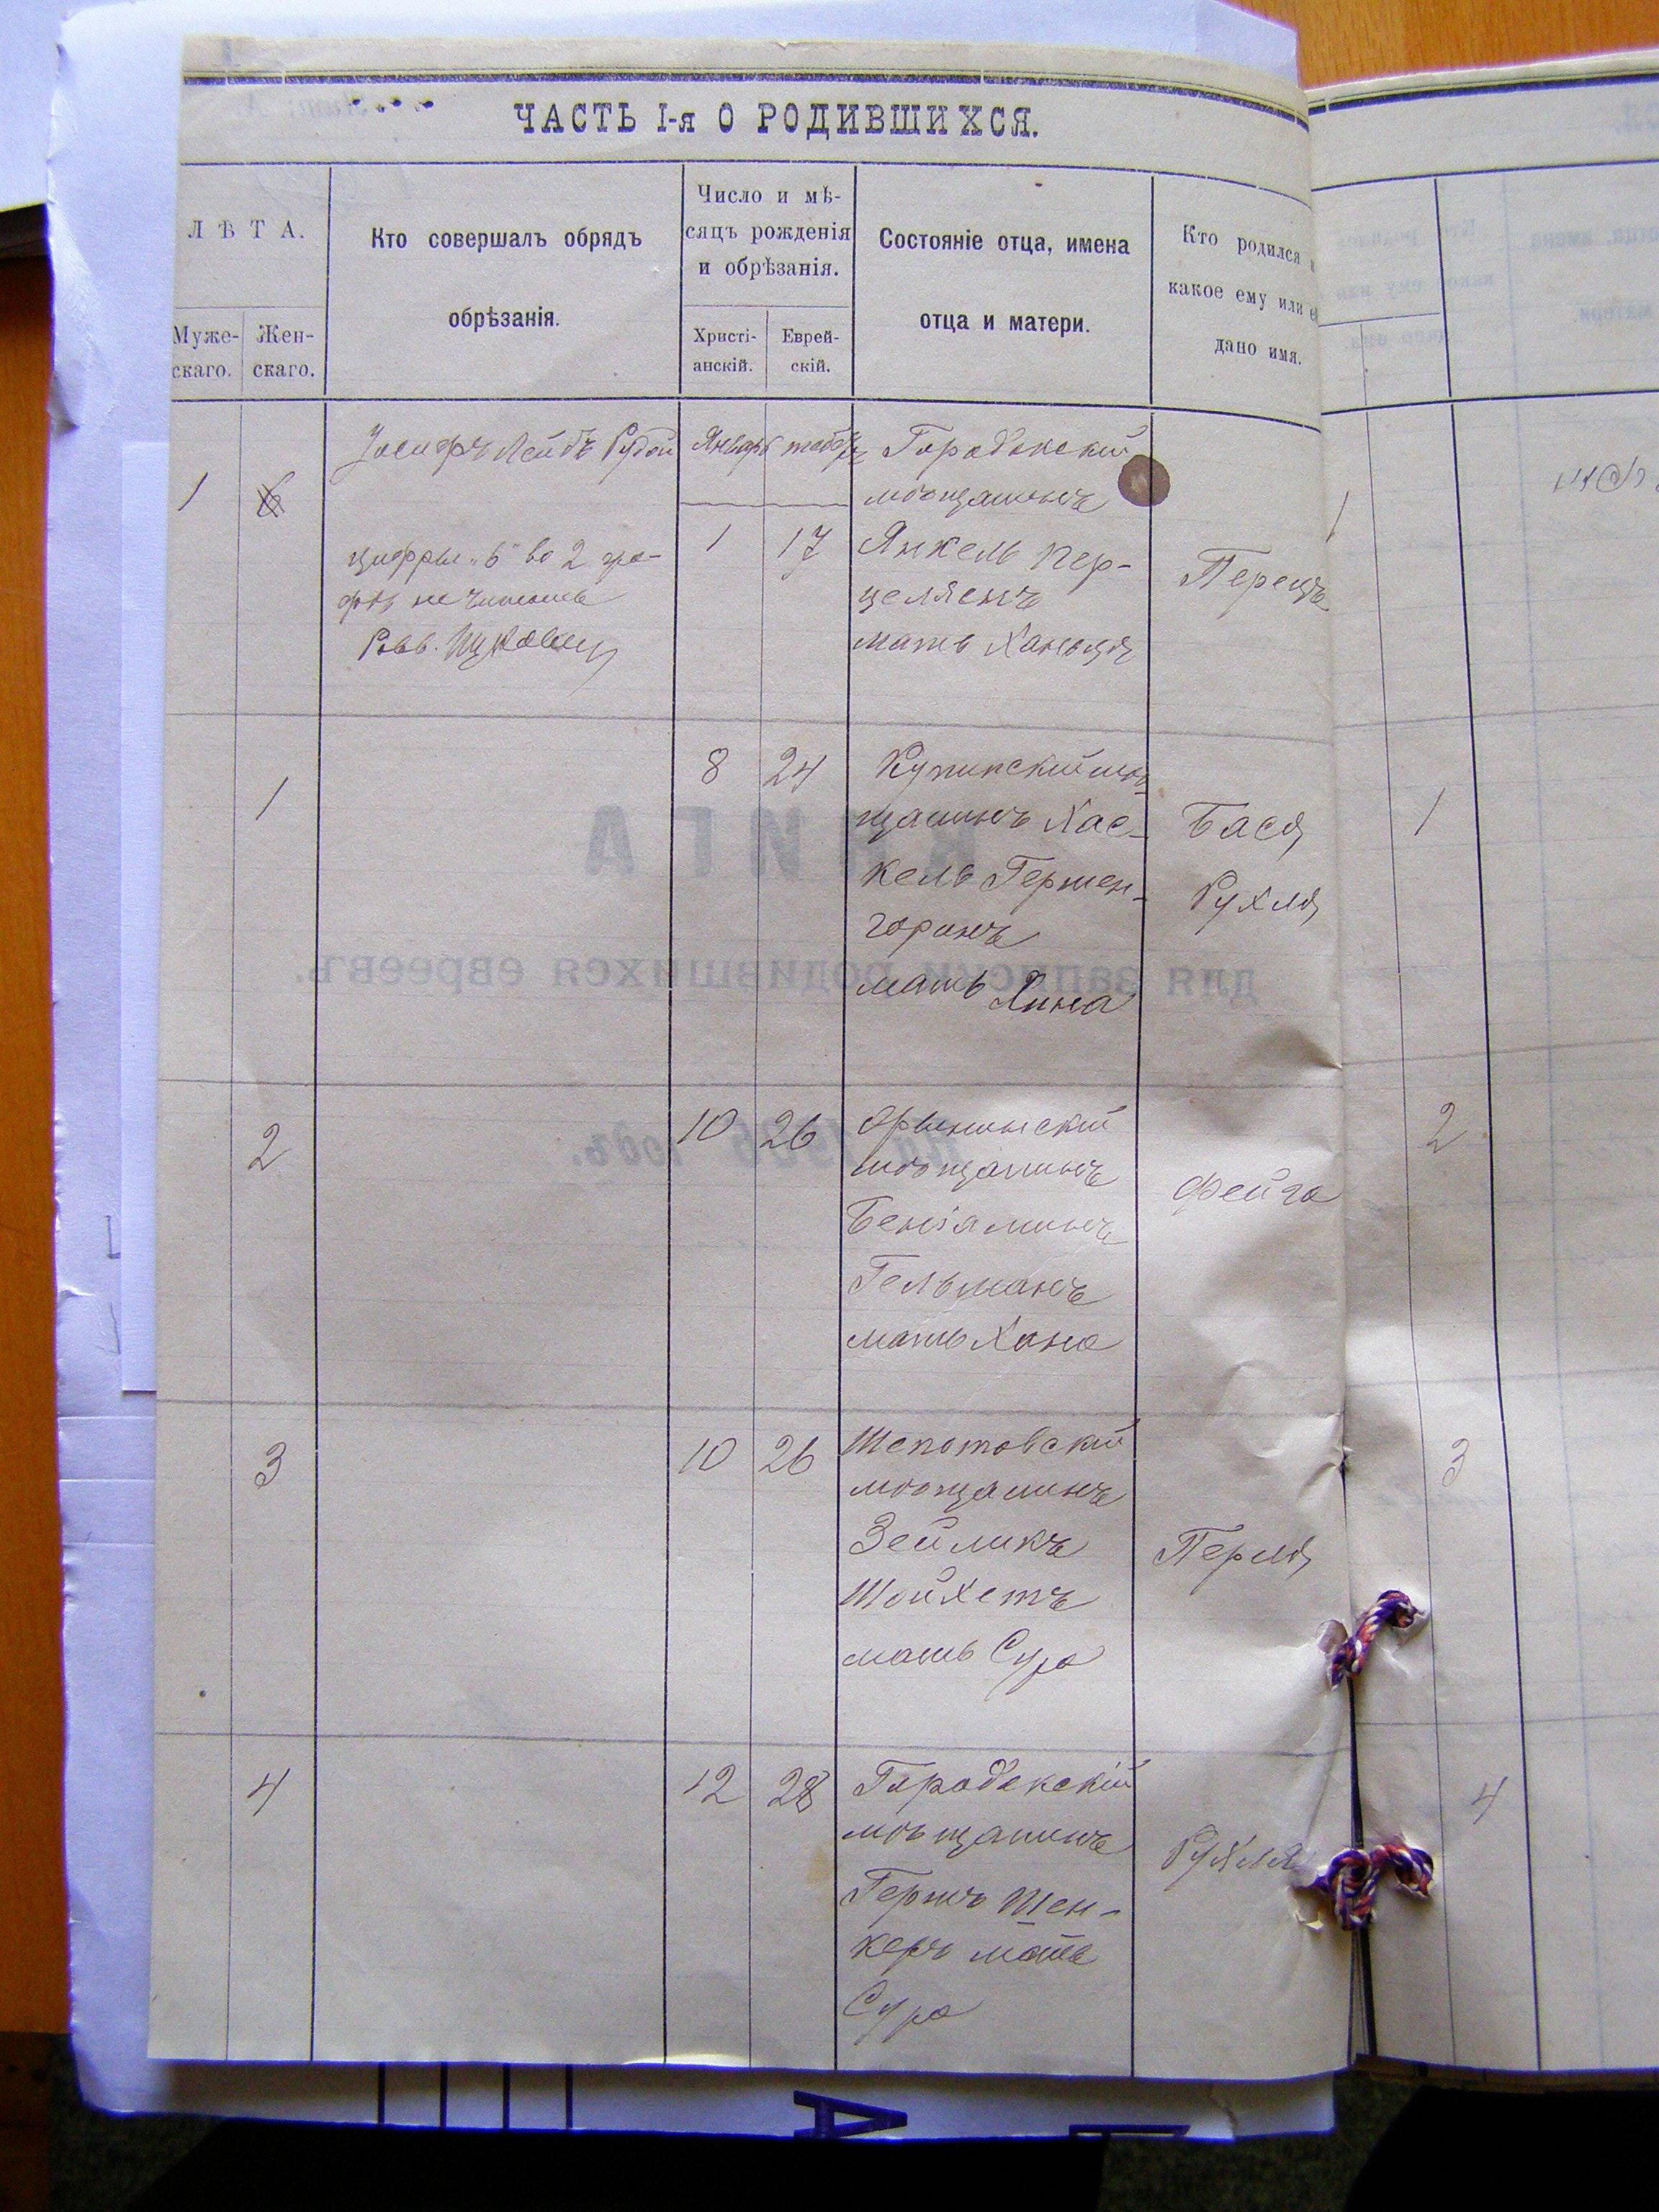 ЧАСТЬ I-я О РОДИВШИХСЯ.
ЛѢТА.
Муже-
скаго.
Жен-
скаго.
Кто совершалъ обрядъ
обрѣзанія.
Число и мѣ-
сяцъ рожденія
и обрѣзанія.
Христі-
анскій.
Еврей-
скій.
Состояніе отца, имена
отца и матери.
Кто родился и
какое ему или ей
дано имя.
1
6
Іосифъ Лейбъ Рудой
цифры „6“ во 2 гра-
фѣ не читать
Равв.
Январь
1
17
Городокскій
мѣщанинъ
Янкель Пер-
цели
мать Ханьця
Перецъ
1
8
24
Купинскій мѣ-
щанинъ Хас-
кель Гершен-
горинъ
мать Хина
Бася
Рухля
2
10
26
Орынинскій
мѣщанинъ
Беніаминъ
Гельманъ
мать Хана
Фейга
3
10
26
Шепетовскій
мѣщанинъ
Зейликъ
Шойхетъ
мать Сура
Перля
4
12
28
Городокскій
мѣщанинъ
Гершъ Шен-
керъ мать
Сура
Рухля
1
1
2
3
4
КНИГА
для записки родившихся евреевъ.
годъ.